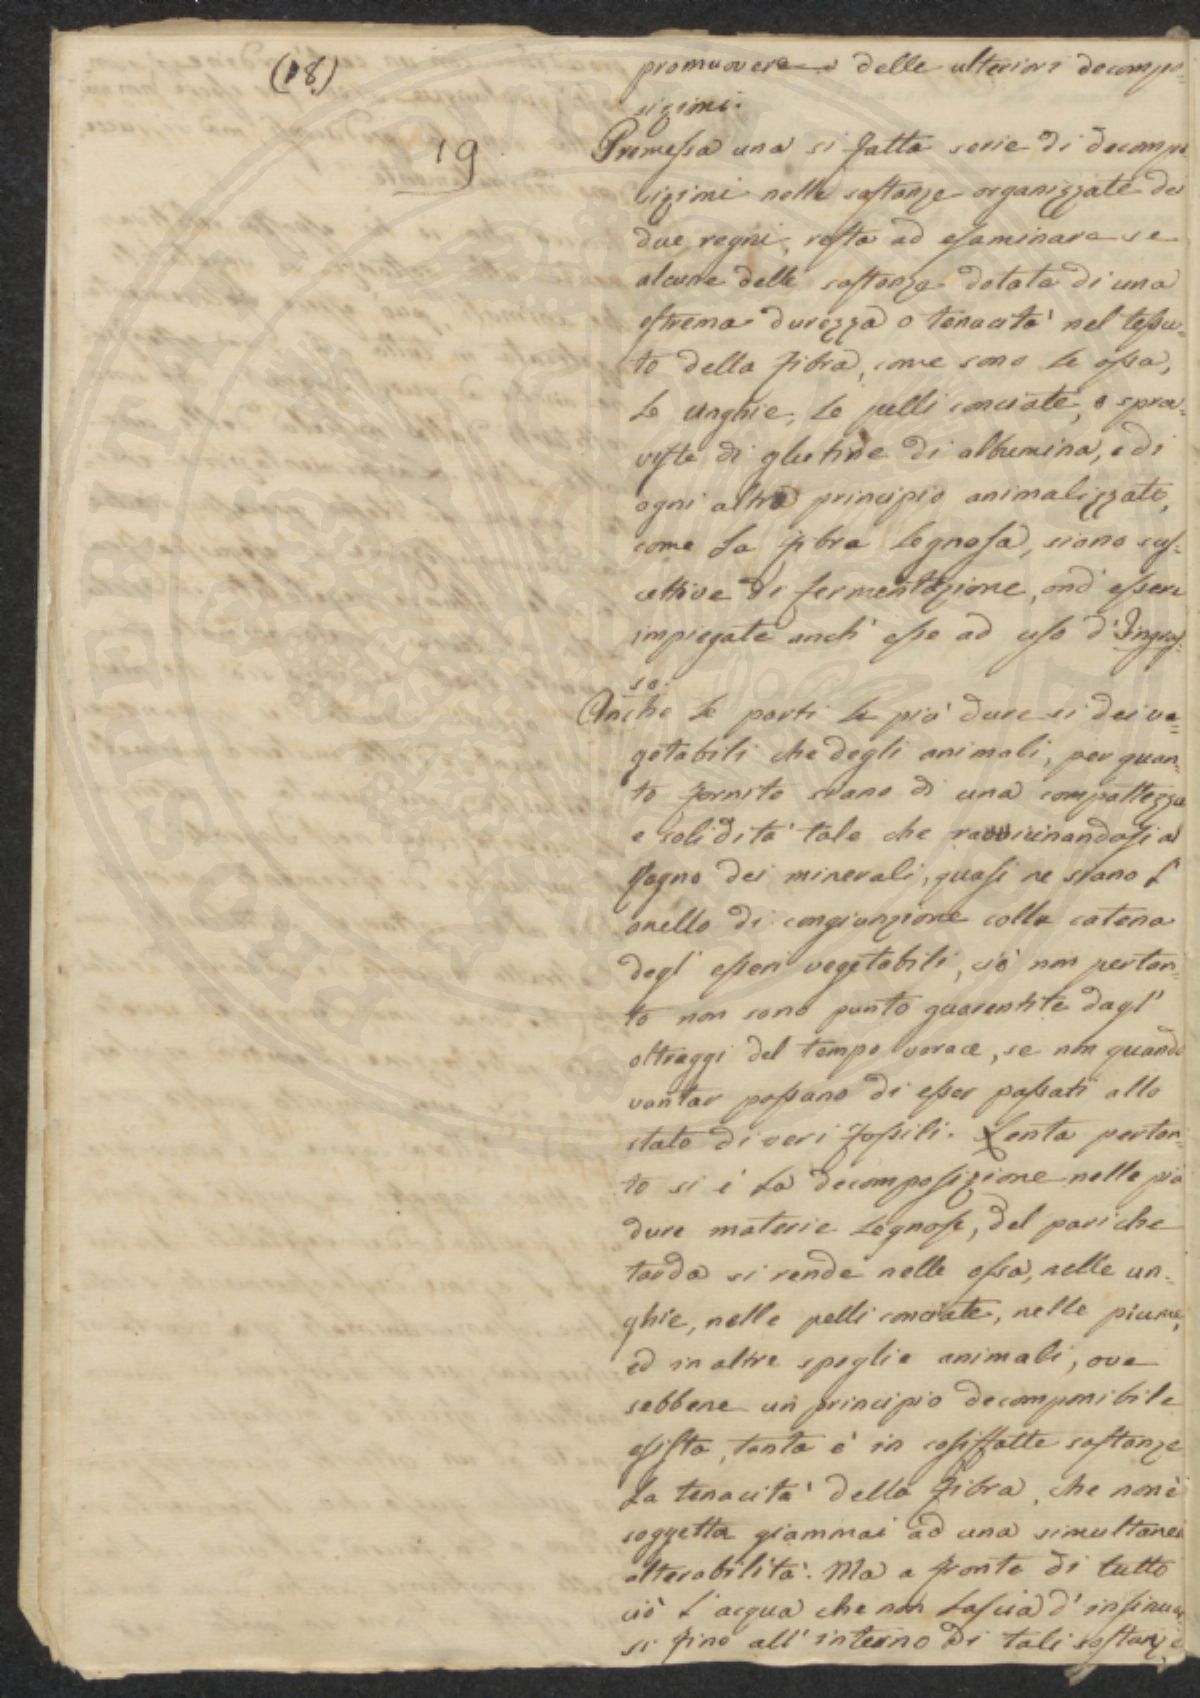 (18.)
19
promuovere delle ulteriori decompo-
sizioni.
Premessa una si fatta serie di decompo
sizioni nelle sostanze organizzate dei
due regni, resta ad esaminare se
alcune delle sostanze dotate di una
estrema durezza o tenacità nel tessu-
to della fibra, come sono le ossa,
le unghie, le pelli conciate, o sprov-
viste di glutine di albumina, e di
ogni altro principio animalizzato,
come la fibra legnosa, siano sus-
cettive di fermentazione, ond' essere
impiegate anch' esse ad uso d' Ingras-
so.
Anche le parti le più dure si dei ve-
getabili che degli animali, per quan-
to fornite siano di una compattezza
e solidità tale che ravvicinandosi al
Regno dei minerali, quasi ne siano l'
anello di congiunzione colla catena
degl' esseri vegetabili, ciò non pertan-
to non sono punto guarentite dagl'
oltraggi del tempo vorace, se non quando
vantar possano di esser passati allo
stato di veri fossili. Lenta pertan-
to si è la decomposizione nelle più
dure materie legnose, del pari che
tarda si rende nelle ossa, nelle un-
ghie, nelle pelli conciate, nelle piume,
ed in altre spoglie animali, ove
sebbene un principio decomponibile
esista, tanta è in cosiffatte sostanze
la tenacità della fibra, che non è
soggetta giammai ad una simultanea
alterabilità. Ma a fronte di tutto
ciò l'acqua che non lascia d' insinuar
si fino all' interno di tali sostanze